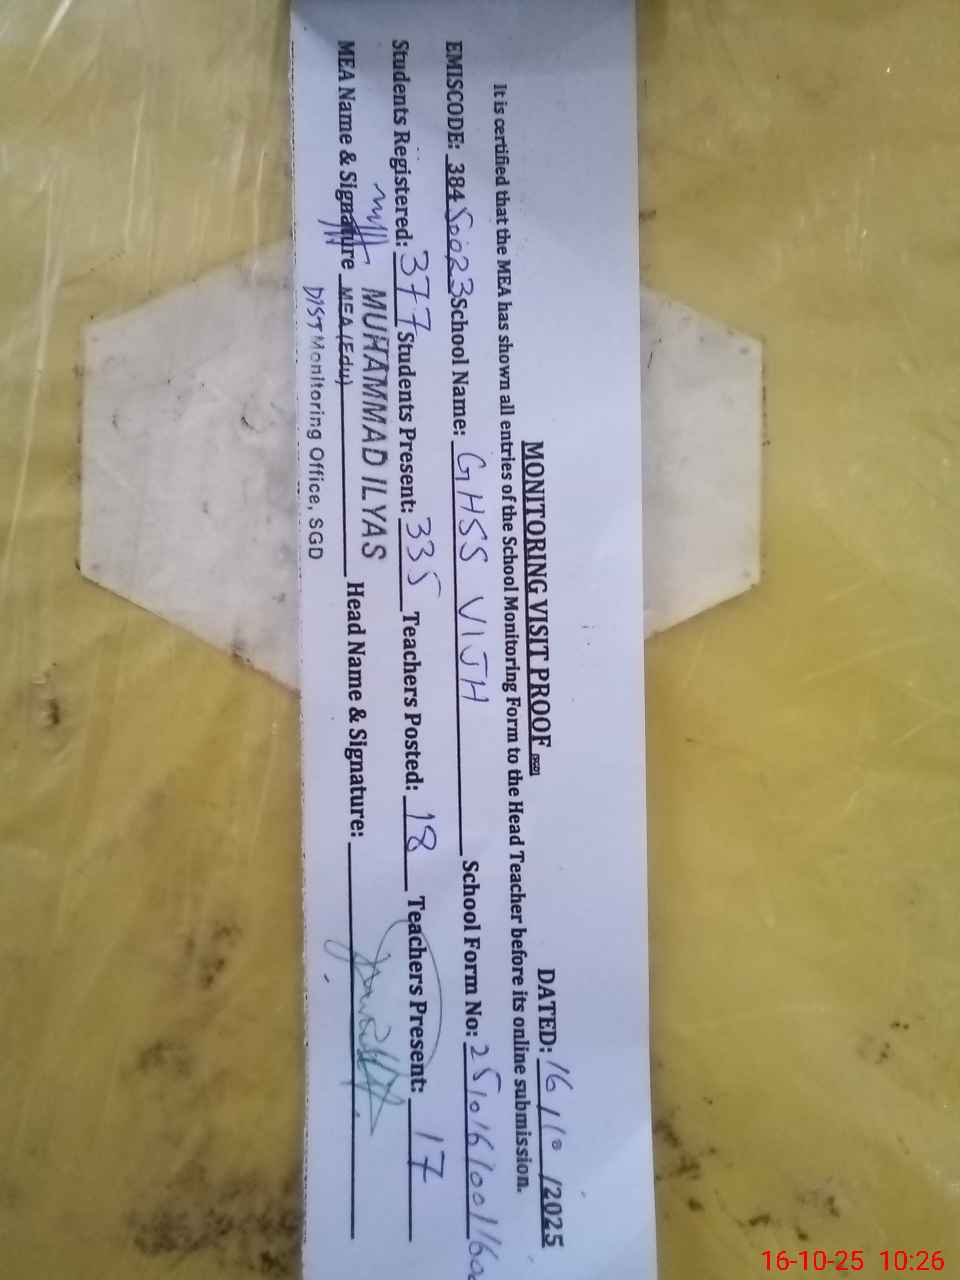 MONITORING VISIT PROOF DATED: 16/10/2025
It is certified that the MEA has shown all entries of the School Monitoring Form to the Head Teacher before its online submission.
EMISCODE: 38450023 School Name: GHSS VIJH School Form No:
Students Registered: 377 Students Present: 335 Teachers Posted: 18 Teachers Present: 17
MUHAMMAD ILYAS
MEA Name & Signature MEA (Edu) Head Name & Signature:
DIST Monitoring Office, SGD
16-10-25 10:26